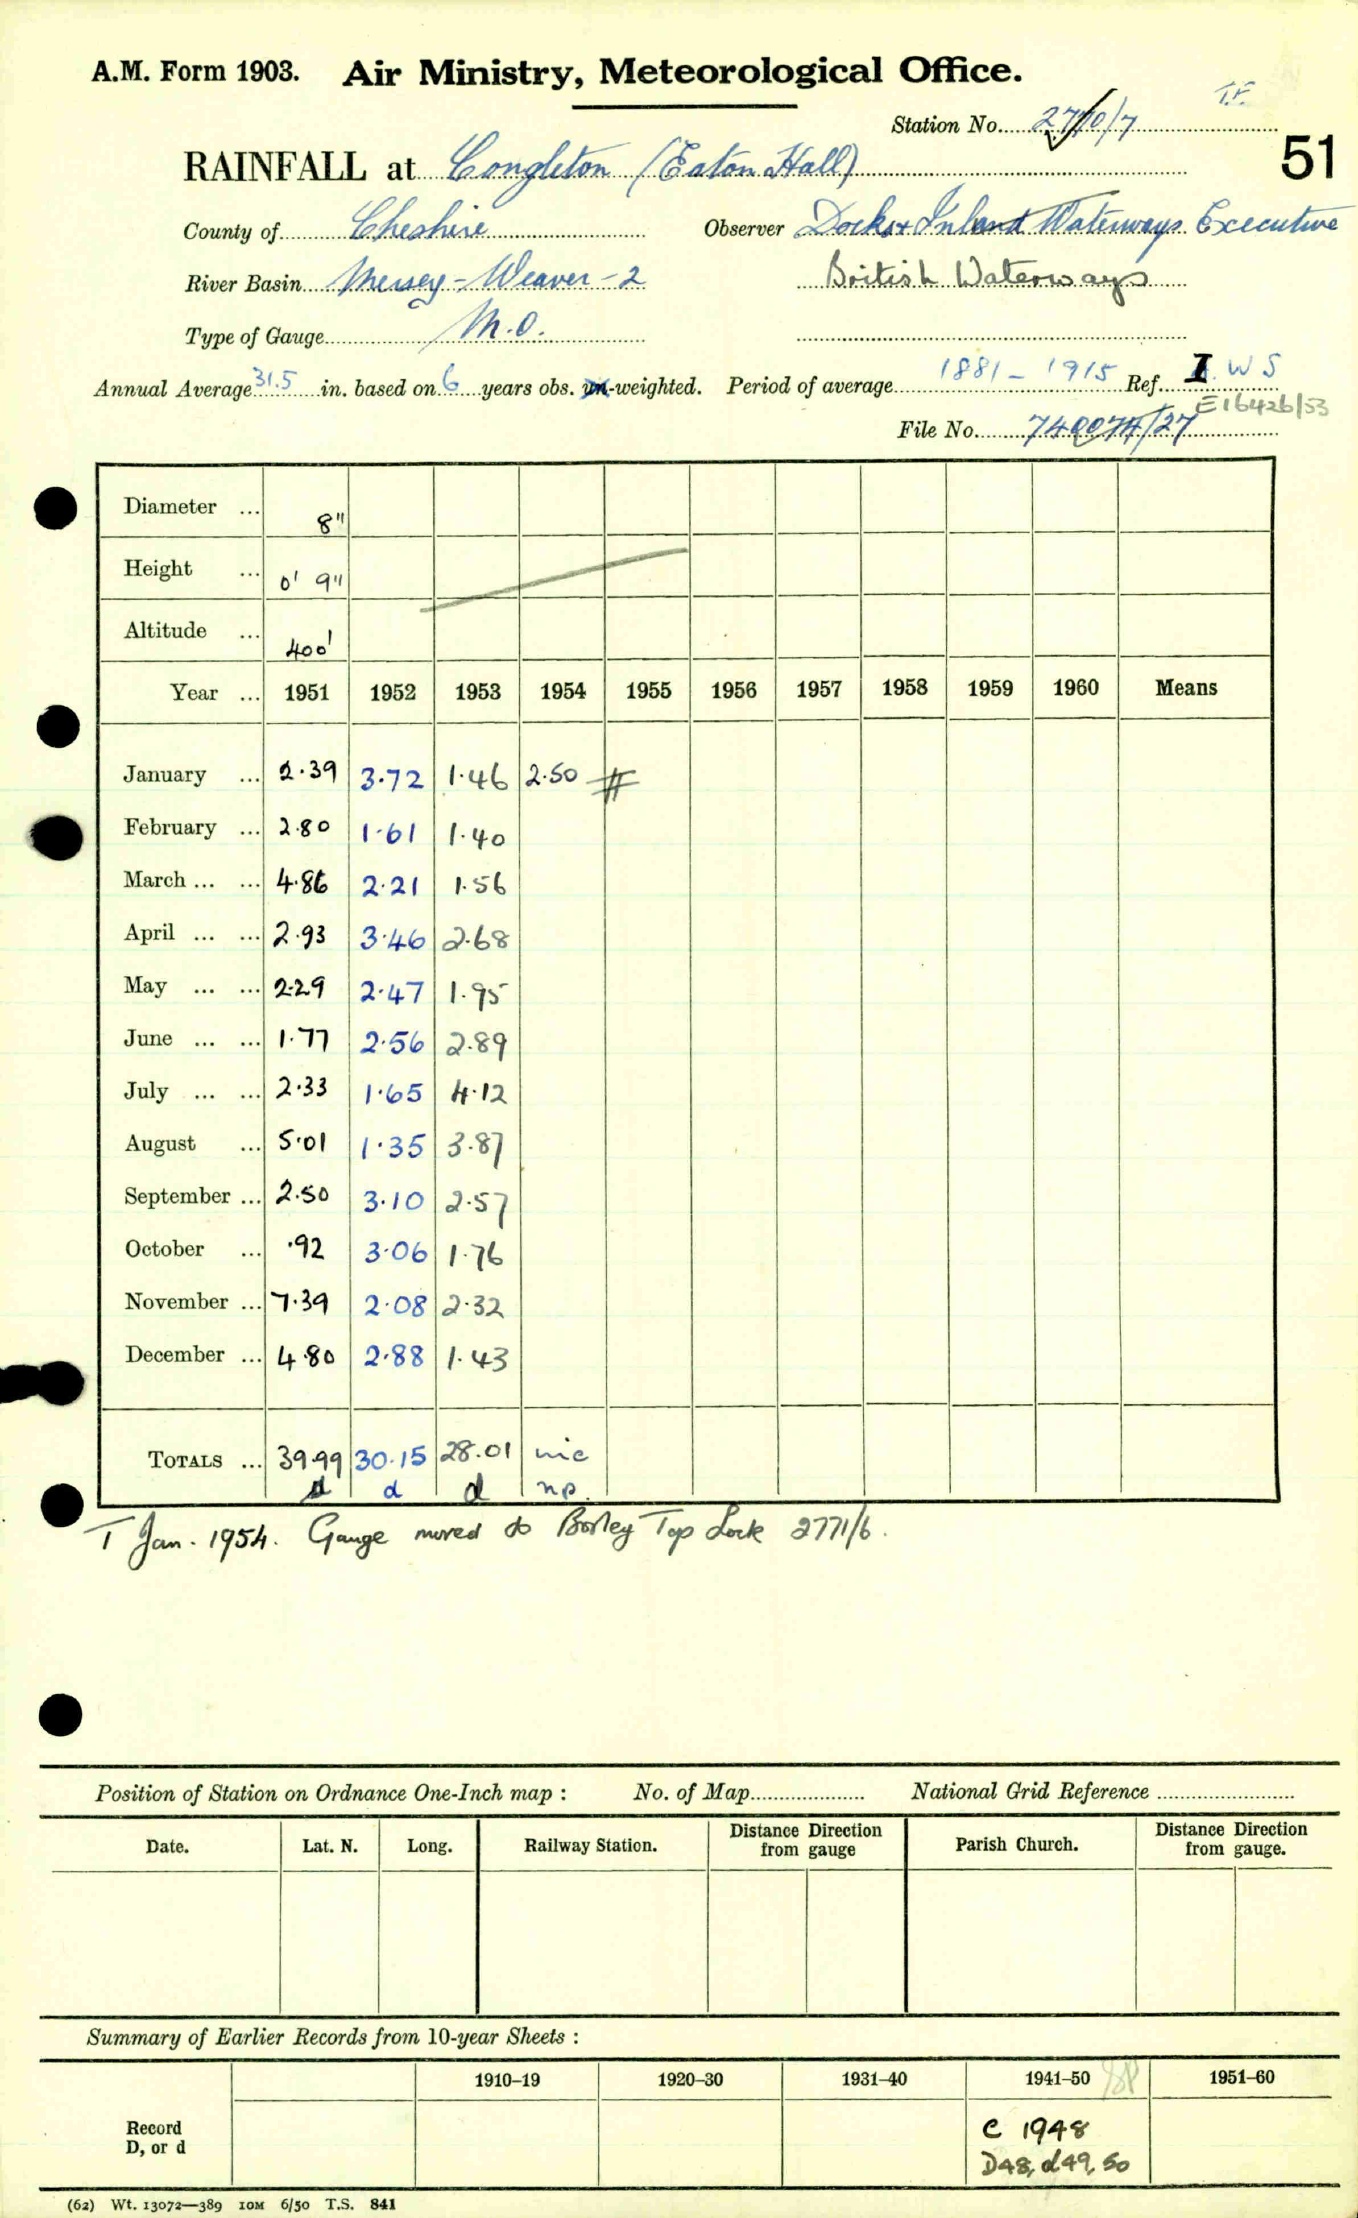 A.M. Form 1903. Air Ministry, Meteorological Office.
T.F.
Station No. 2770/7
51
RAINFALL at Congleton (Eaton Hall)
County of Cheshire Observer Docks & Inland Waterways Executive
River Basin Mersey - Weaver - 2 British Waterways
Type of Gauge M.O.
Annual Average 31.5 in. based on 6 years obs. un-weighted. Period of average 1881 - 1915 Ref. I.W S
E16426/53
File No. 740074/27
Diameter ... 8"
Height ... 0' 9"
Altitude ... 400'
Year ... 1951 1952 1953 1954 1955 1956 1957 1958 1959 1960 Means
January ... 2.39 3.72 1.46 2.50 #
February ... 2.80 1.61 1.40
March ... ... 4.86 2.21 1.56
April ... ... 2.93 3.46 2.68
May ... ... 2.29 2.47 1.95
June ... ... 1.77 2.56 2.89
July ... ... 2.33 1.65 4.12
August ... 5.01 1.35 3.87
September ... 2.50 3.10 2.57
October ... .92 3.06 1.76
November ... 7.39 2.08 2.32
December ... 4.80 2.88 1.43
TOTALS ... 39.99 30.15 28.01 inc
d d d np.
T Jan. 1954. Gauge moved to Bosley Top Lock 2771/6.
Position of Station on Ordnance One-Inch map : No. of Map National Grid Reference
Date. Lat. N. Long. Railway Station. Distance from Direction gauge Parish Church. Distance from Direction gauge.
Summary of Earlier Records from 10-year Sheets :
1910–19 1920–30 1931–40 1941–50 1951–60
Record
D, or d
C 1948
D48, d49, 50
(62) Wt. 13072—389 10M 6/50 T.S. 841